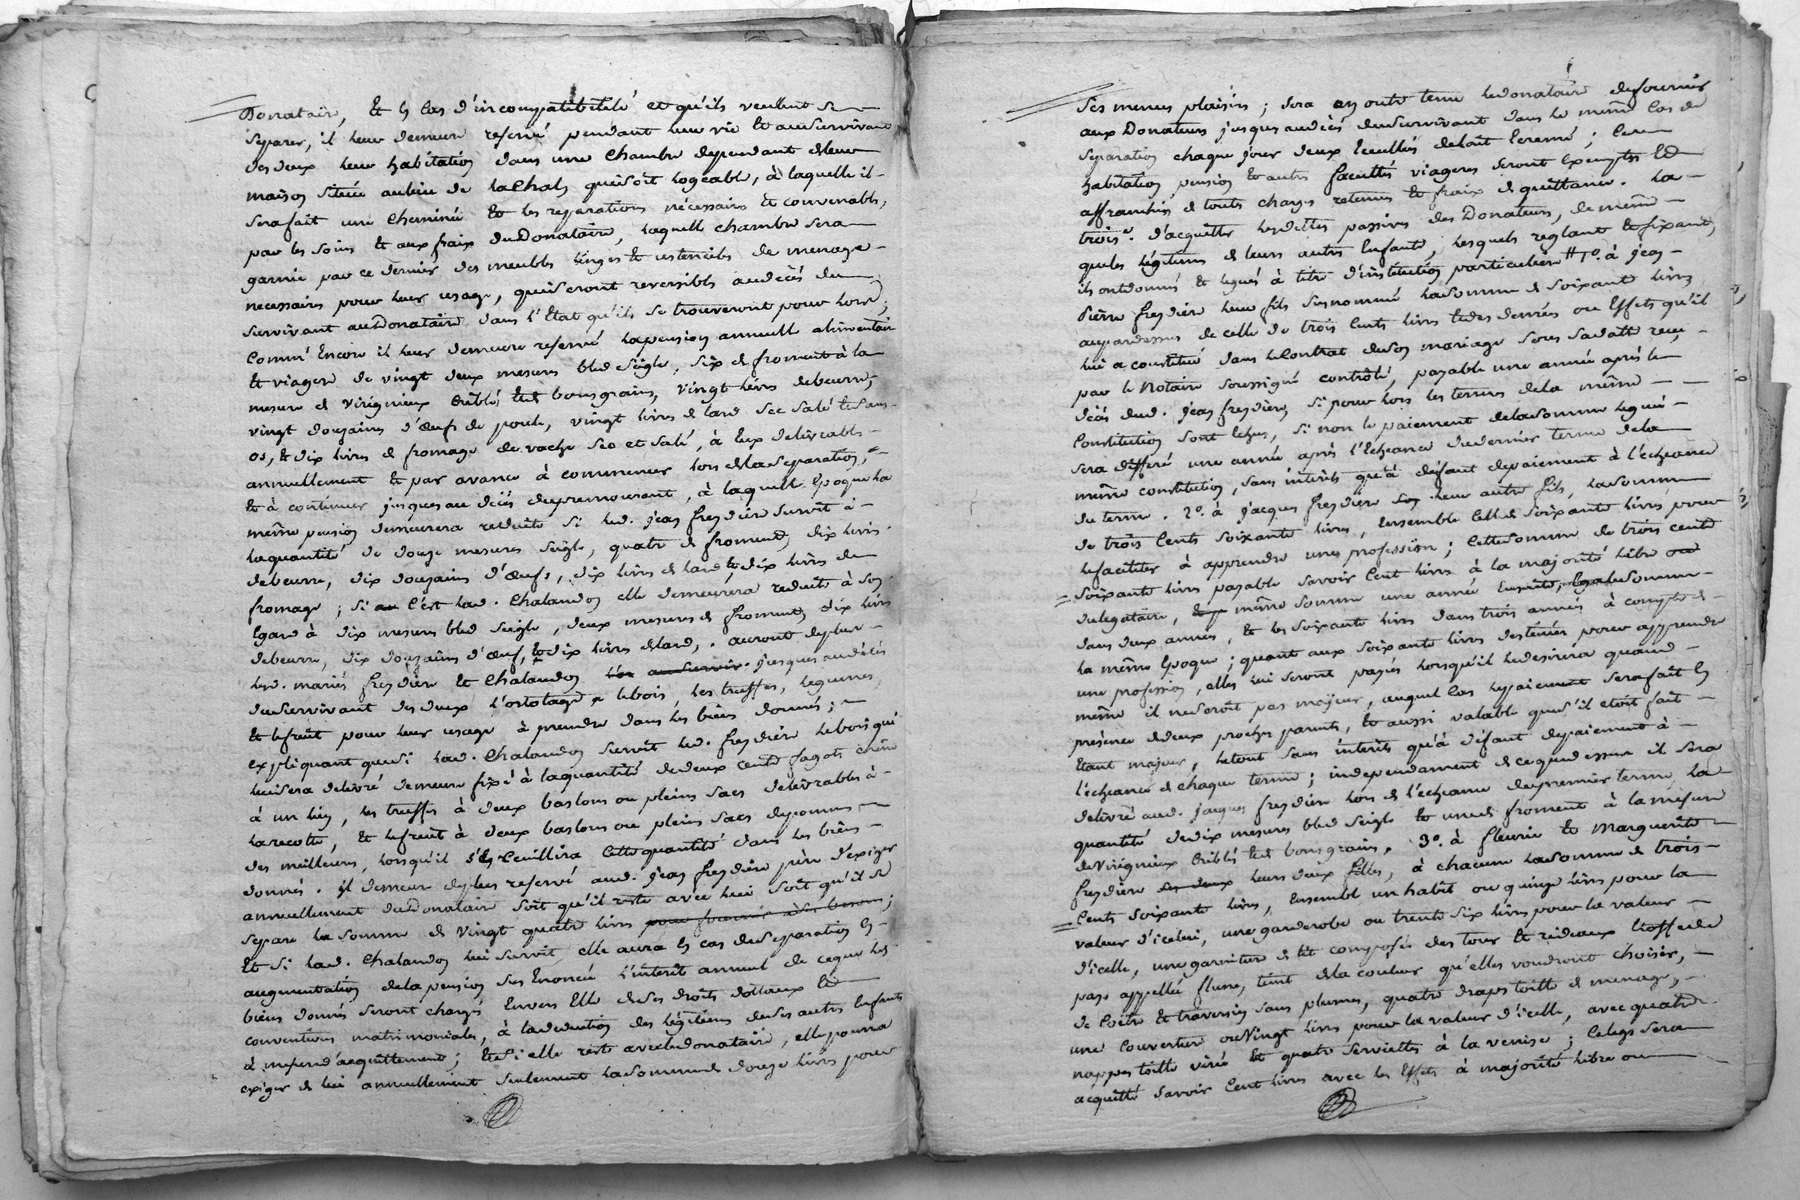 Donataire, Et En Cas d'incompatibilité et qu'ils veuillent se
separer, il leur demeure reservé pendant leur vie Et au survivant
des deux leur habitation dans une Chambre dependant de leur
maison située au lieu de lachals quisoit logeable, à laquelle il
sera fait une cheminée Et les reparations nécessaires Et convenables,
par les soins Et aux fraix du Donataire, laquelle chambre sera
garnie par ce dernier des meubles linges Et ustenciles de menage
necessaires pour leur usage, qui seront reversibles au décés du
survivant au Donataire dans l'Etat qu'ils se trouveront pour lors;
Comm' Encore il leur demeure reservé la pension annuelle alimentaire
Et viagere de vingt deux mesures bled seigle, six de froment à la
mesure de virignieux Criblés Et de bons grains, vingt livres de beurre,
vingt douzaines d'œufs de poule, vingt livres de lard sec salé Et sans
os, Et dix livres de fromage de vache sec et salé, à Eux delivrables
annuellement Et par avance à commencer lors de la separation,
Et à continuer jusques au décés du premourant, à laquelle Epoque la
même pension demeurera reduite si led. jean freydiere survit à
la quantité de douze mesures seigle, quatre de froment, dix livres
de beurre, dix douzaines d'œufs, dix livres de lard Et dix livres de
fromage; si c'est lad. Chalandon elle demeurera reduite à son
Egard à dix mesures bled seigle, deux mesures de froment, dix livres
de beurre, dix douzaines d'œufs, Et dix livres de lard, . auront deplus
led. mariés freydiere Et Chalandon jusques au décés
du survivant des deux l'ortolage, le bois, les truffes, legumes,
Et le fruit pour leur usage à prendre dans les biens donnés;
expliquant que si lad. Chalandon survit led. freydiere le bois qui
lui sera delivré demeure fixé à la quantité de deux cents fagots chêne
à un lien, les truffes à deux baslons ou pleins sacs delivrables à
la recolte, Et le fruit à deux baslons ou pleins sacs de pommes
des meilleures, lorsqu'il s'En Ceuillira cette quantité dans les biens
donnés. il demeure deplus reservé aud. jean freydiere père d'exiger
annuellement du Donataire soit qu'il reste avec lui soit qu'il se
separe la somme de vingt quatre livres pour fournir à ses besoins;
Et si lad. Chalandon lui survit, elle aura En cas de separation En
augmentation de la pension sus Enoncée l'interêt annuel de ce que les
biens donnés seront chargés Envers Elle de ses droits dottaux Et
conventions matrimoniales, à la deduction des légitimes de ses autres Enfants
à mesure d'acquittement; Et si elle reste avec le donataire, elle pourra
exiger de lui annuellement seulement la somme de douze livres pour
ses menus plaisirs; sera En outre tenu le donataire de fournir
aux Donateurs jusques au décés du survivant dans le même Cas de
separation chaque jour deux Ecuellées de lait Ecremé; leur
habitation pension Et autres facultés viageres seront Exemptes Et
affranchies de toutes charges retenues Et fraix de quittance. La
trois.e d'acquitter les dettes passives des Donateurs, de même
que les légitimes de leurs autres Enfants, lesquels reglant Et fixant,
ils ont donnés Et legués à titre d'institution particuliere 1.o à jean
pierre freydiere leur fils susnommé la somme de soixante livres
au par dessus de celle de trois cents livres Et des denrées ou Effets qu'il
lui a constitué dans le Contrat de son mariage sous sa datte reçu
par le Notaire soussigné contrôlé, payable une année après le
décés dud. jean freydiere, si pour lors les termes de la même
Constitution sont Echus, si non le paiement de la somme leguée
sera différé une année après l'Echeance du dernier terme de la
même constitution, sans interêts qu'à défaut de paiement à l'échéance
du terme. 2.o à jacques freydiere son leur autre fils, la somme
de trois Cents soixante livres, Ensemble celle de soixante livres pour
le faciliter à apprendre une profession; cette somme de trois cents
soixante livres payable savoir Cent livres à la majorité libre ou
du legataire, même somme une année Ensuite, Egale somme
dans deux années, Et les soixante livres dans trois années à compter de
la même Epoque; quant aux soixante livres destinées pour apprendre
une profession, elles lui seront payés lorsqu'il le desirera quand
même il ne seroit pas majeur, auquel Cas le paiement sera fait En
presence de deux proches parents, Et aussi valable que s'il etoit fait
Etant majeur, le tout sans interêts qu'à défaut de paiement à
l'écheance de chaque terme; independament de ce que dessus il sera
delivré aud. jacques freydiere lors de l'écheance du premier terme, la
quantité de dix mesures bled seigle Et une de froment à la mesure
de Virignieux Criblés Et de bons grains. 3.o à fleurie Et Marguerite
freydiere leurs deux filles, à chacune la somme de trois
Cents soixante livres, Ensemble un habit ou quinze livres pour la
valeur d'icelui, une garderobe ou trente six livres pour la valeur
d'icelle, une garniture de lit composée des tours Et rideaux Etoffe de
pays appellée flune, teint de la couleur qu'elles voudront choisir,
de Coitre Et traversin sans plumes, quatre draps toille de menage,
une Couverture ou Vingt livres pour la valeur d'icelle, avec quatre
nappes toille virée Et quatre serviettes à la venise; Ce legs sera
acquitté savoir Cent livres avec les Effets à majorité libre ou